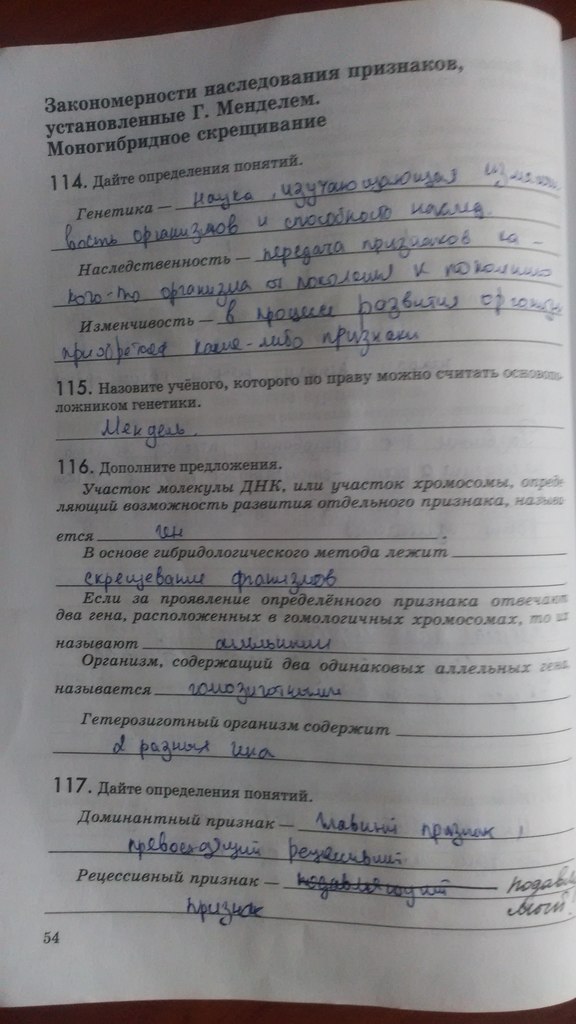 Закономерности наследования признаков,
установленные Г. Менделем.
Моногибридное скрещивание
114. Дайте определения понятий.
Генетика — наука, изучающающая изменчи
вость организмов и способность наслед.
Наследственность — передача признаков ка-
кого-то организма от поколения к поколению
Изменчивость — в процессе развития организм
приобретая какие-либо признаки
115. Назовите учёного, которого по праву можно считать основопо
ложником генетики.
Мендель
116. Дополните предложения.
Участок молекулы ДНК, или участок хромосомы, опреде
ляющий возможность развития отдельного признака, называ
ется ген .
В основе гибридологического метода лежит
скрещевание организмов
Если за проявление определённого признака отвечают
два гена, расположенных в гомологичных хромосомах, то их
называют аллельными
Организм, содержащий два одинаковых аллельных гена
называется гомозиготными
Гетерозиготный организм содержит
2 разных гена
117. Дайте определения понятий.
Доминантный признак — главный признак,
превосходящий рецессивный
Рецессивный признак — подавляющий подавля
емый
признак
54